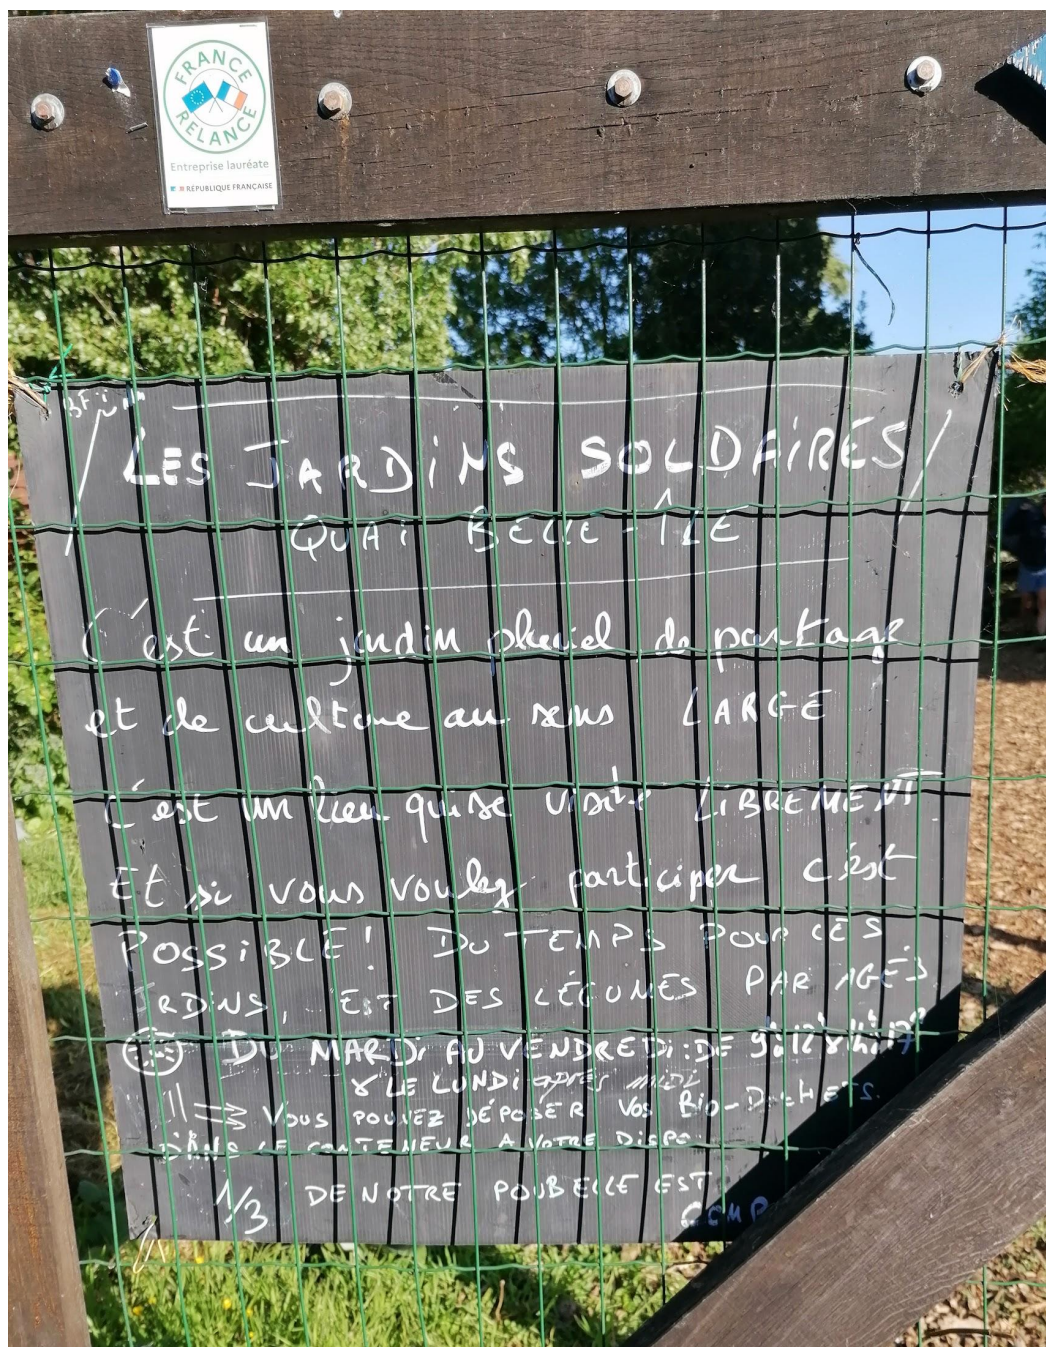 FRANCE
RELANCE
Entreprise lauréate
RÉPUBLIQUE FRANÇAISE
LES JARDiNS SOLDAiRES
QUAi BELLE-ÎLE
C'est un jardin pluriel de partage
et de culture au sens LARGE
C'est un lieu qui se visite LiBREMENT
Et si vous voulez participer c'est
POSSiBLE! DU TEMPS POUR LES
JARDiNS, ET DES LÉGUMES PARTAGÉS
DU MARDi AU VENDREDi: DE
& LE LUNDi après midi
!! ⇒ VOUS POUVEZ DÉPOSER VOS Bio-DECHETS.
DANS LE CONTENEUR A VOTRE DISPO.
1/3 DE NOTRE POUBELLE EST
COMP